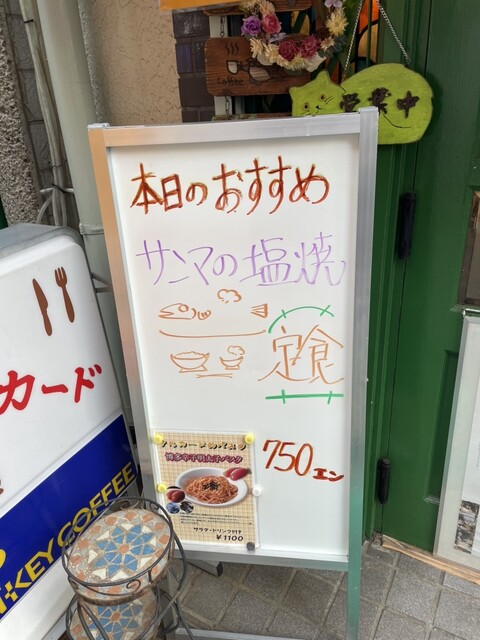 Coffee
営業中
本日のおすすめ
サンマの塩焼
定食
750エン
博多辛子明太子パスタ
サラダ・ドリンク付き
¥1100
カード
KEY COFFEE